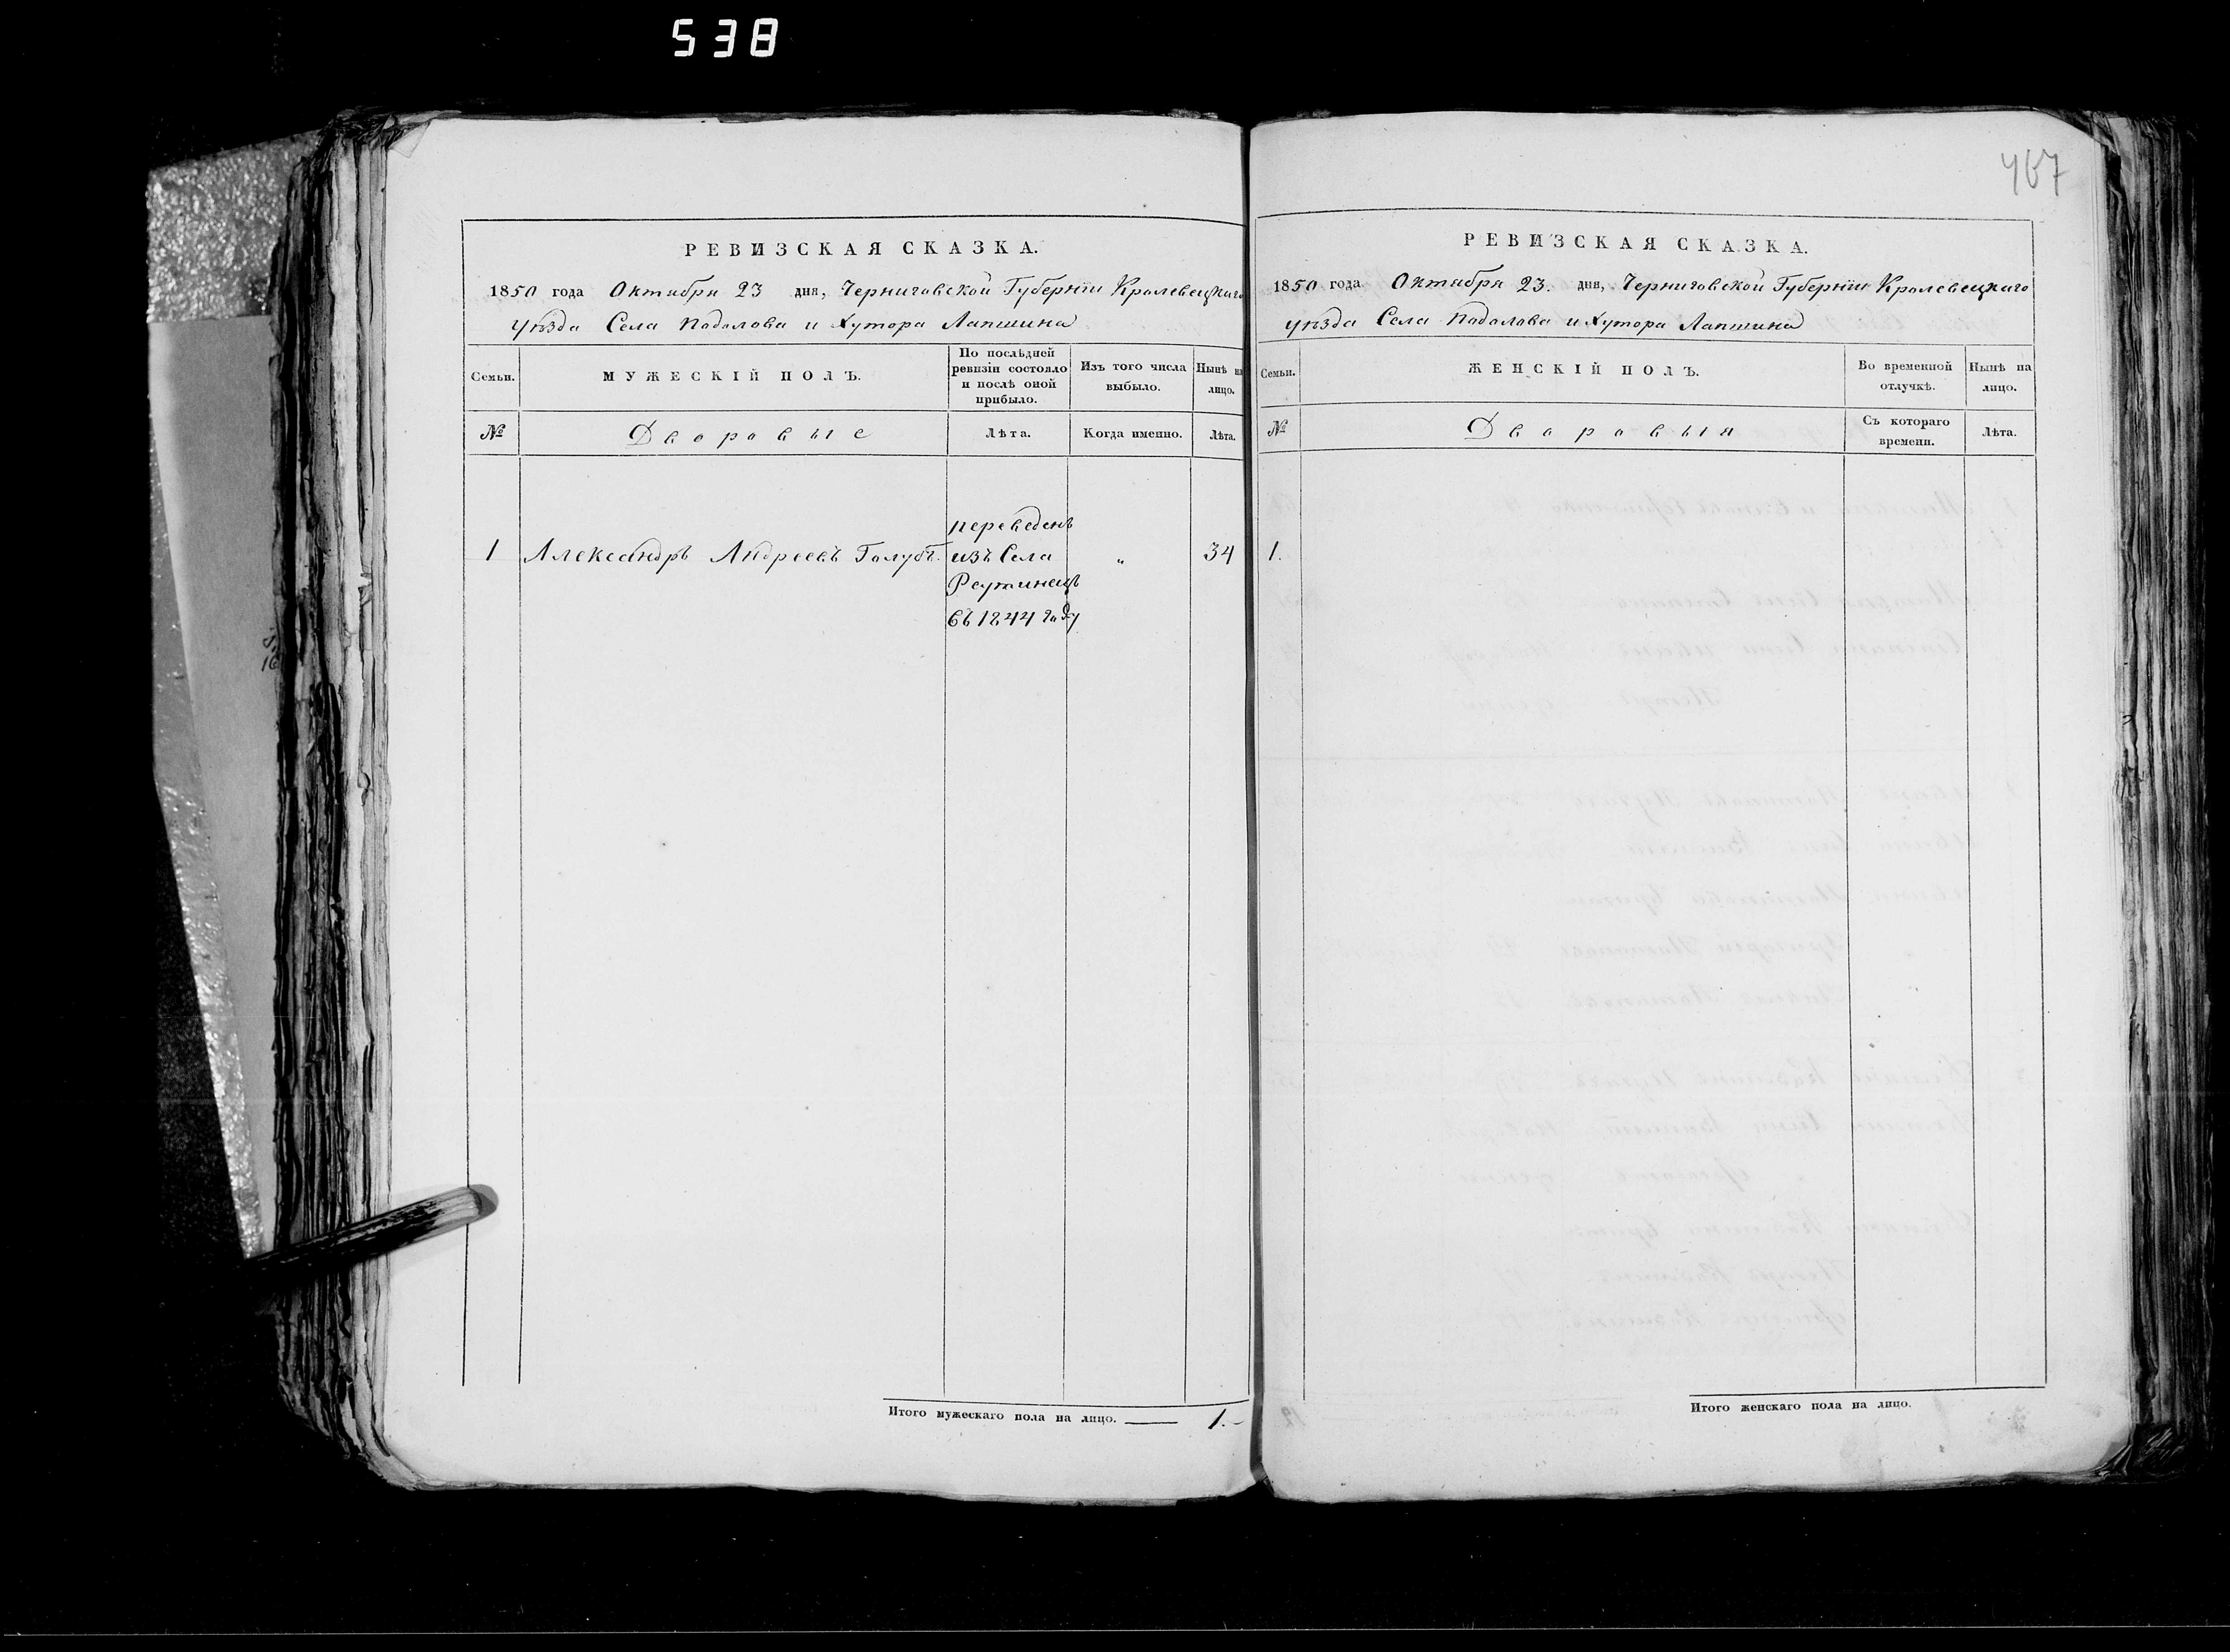 538
467
РЕВИЗСКАЯ СКАЗКА.
1850 года Октября 23 дня, Черниговской Губерніи Кролевецкаго
уѣзда Села Подолова и Хутора Лапшина
Семьи.
МУЖЕСКІЙ ПОЛЪ.
По послѣдней
ревизіи состояло
и послѣ оной
прибыло.
Изъ того числа
выбыло.
Нынѣ на
лицо.
№
Дворовые
Лѣта.
Когда именно.
Лѣта.
переведенъ
1 Александръ Андреевъ Голубъ. изъ Села " 34
Реутинецъ
въ 1844 году
Итого мужескаго пола на лицо. 1.
РЕВИЗСКАЯ СКАЗКА.
1850 года Октября 23. дня, Черниговской Губерніи Кролевецкаго
уѣзда Села Подолова и Хутора Лапшина
Семьи.
ЖЕНСКІЙ ПОЛЪ.
Во временной
отлучкѣ.
Нынѣ на
лицо.
№
Дворовыя
Съ котораго
времени.
Лѣта.
1.
Итого женскаго пола на лицо.